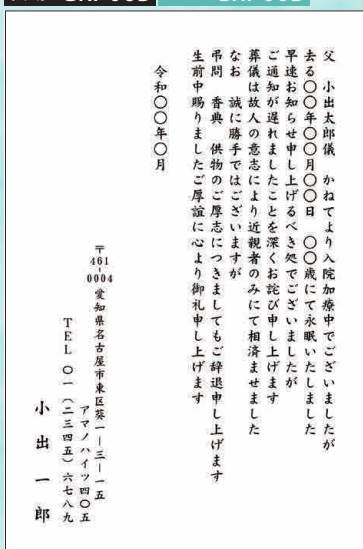 父　小出太郎儀　かねてより入院加療中でございましたが
去る〇〇年〇〇月〇〇日　〇〇歳にて永眠いたしました
早速お知らせ申し上げるべき処でございましたが
ご通知が遅れましたことを深くお詫び申し上げます
葬儀は故人の意志により近親者のみにて相済ませました
なお　誠に勝手ではございますが
弔問　香典　供物のご厚志につきましてもご辞退申し上げます
生前中賜りましたご厚誼に心より御礼申し上げます
令和〇〇年〇月
〒461-0004 愛知県名古屋市東区葵一―三―一五
アマノハイツ四〇五
TEL 〇一（二三四五）六七八九
小出　一郎